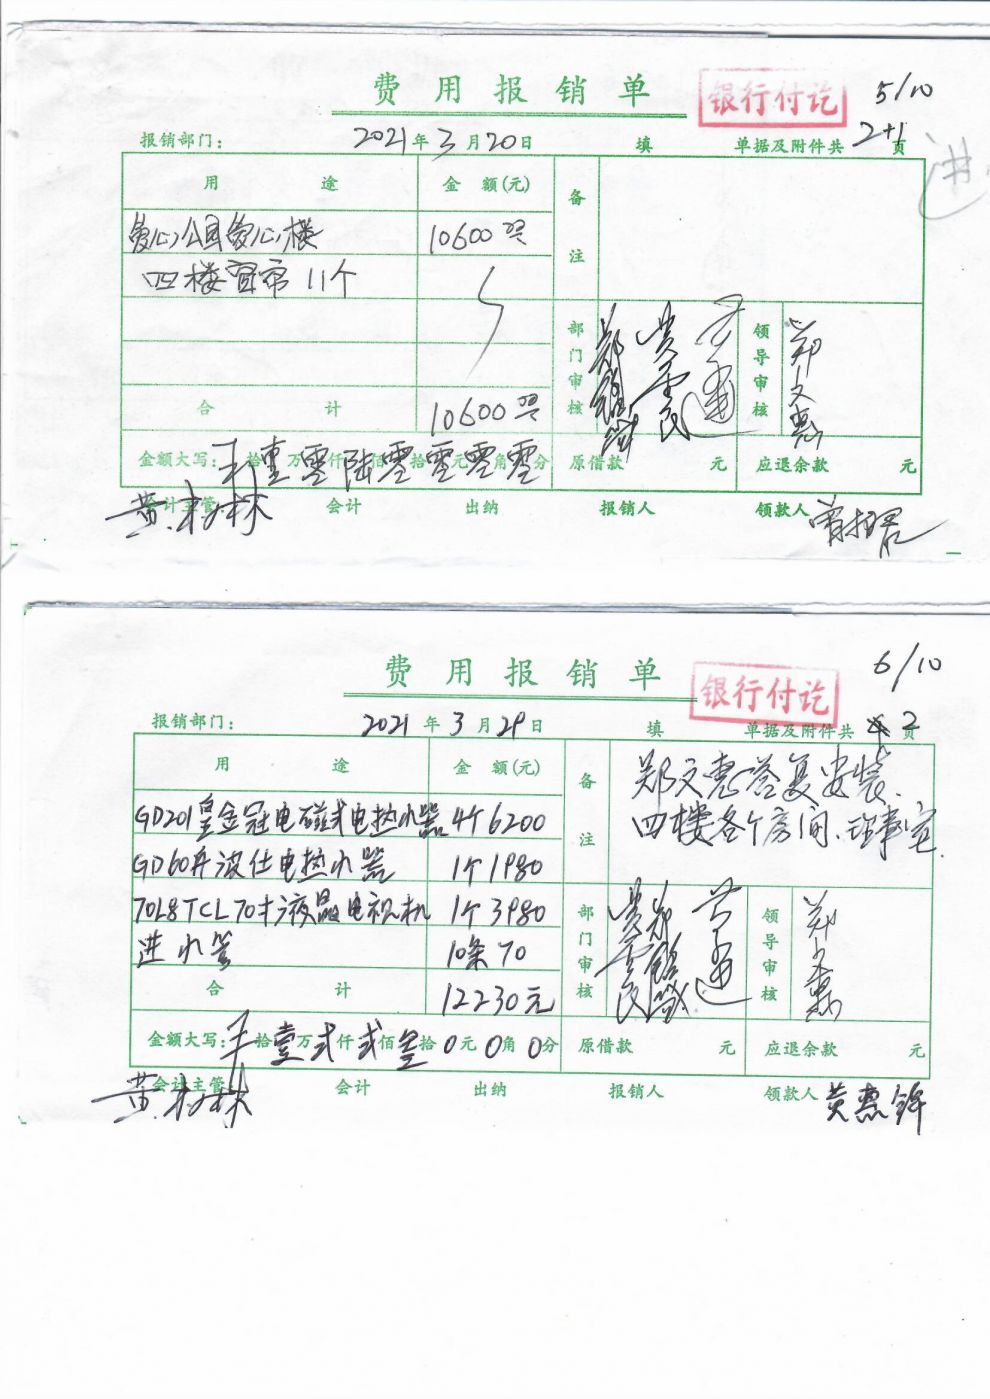 费用报销单
银行付讫
5/10
报销部门: 2021年3月20日 填 单据及附件共 2+1 页
进
用途 金额(元) 备注
爱心公园爱心楼 10600
四楼窗帘 11个
部门审核 领导审核 郑文惠
合计 10600
金额大写: 拾壹万零仟陆佰零拾零元零角零分 原借款 元 应退余款 元
会计主管 会计 出纳 报销人 领款人
费用报销单
银行付讫
6/10
报销部门: 2021年3月29日 填 单据及附件共 2 页
用途 金额(元) 备注
郑文惠答复安装.
四楼各个房间.理事室.
GD201皇金冠电磁式电热水器 4个 6200
GD60升波仕电热水器 1个 1980
70L8TCL70寸液晶电视机 1个 3980
进水管 10条 70
部门审核 领导审核 郑文惠
合计 12230元
金额大写: 拾壹万弍仟弍佰叁拾0元0角0分 原借款 元 应退余款 元
会计主管: 会计 出纳 报销人 领款人 黄惠锋